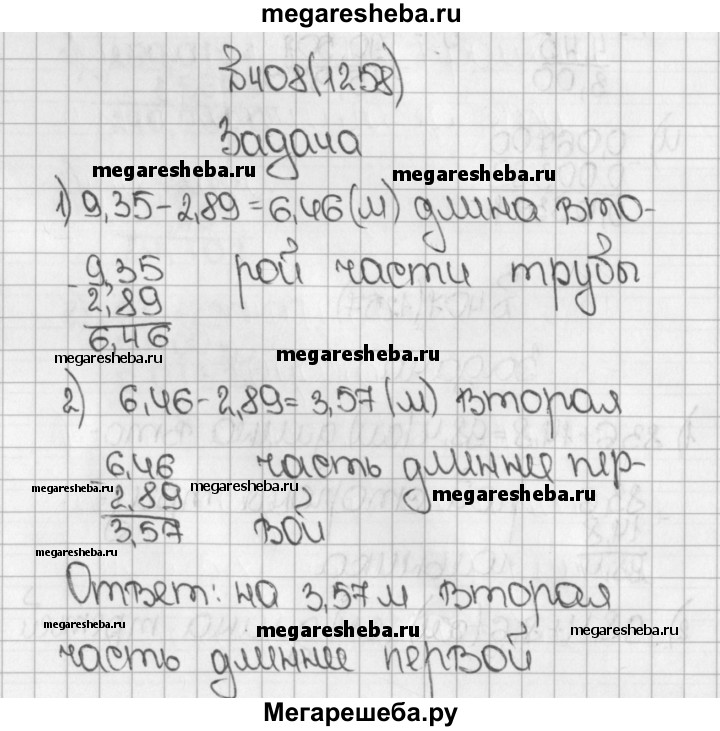 megaresheba.ru
№408(1258)
Задача
megaresheba.ru megaresheba.ru
1) 9,35-2,89=6,46(м) длина вто-
- 9,35 рой части трубы
2,89
6,46
megaresheba.ru megaresheba.ru
2) 6,46-2,89=3,57(м) вторая
- 6,46 часть длиннее пер-
megaresheba.ru 2,89 megaresheba.ru megaresheba.ru
3,57 вой
megaresheba.ru
Ответ: на 3,57м вторая
megaresheba.ru megaresheba.ru megaresheba.ru
часть длиннее первой
Мегарешеба.ру